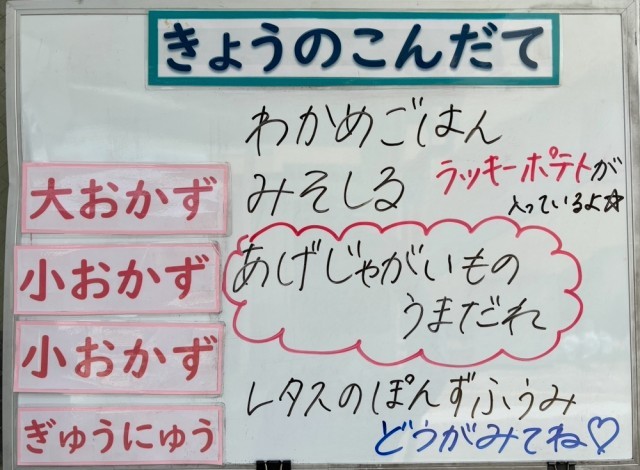 きょうのこんだて
わかめごはん
大おかず
みそしる
ラッキーポテトが
入っているよ☆
小おかず
あげじゃがいもの
うまだれ
小おかず
レタスのぽんずふうみ
ぎゅうにゅう
どうがみてね♡